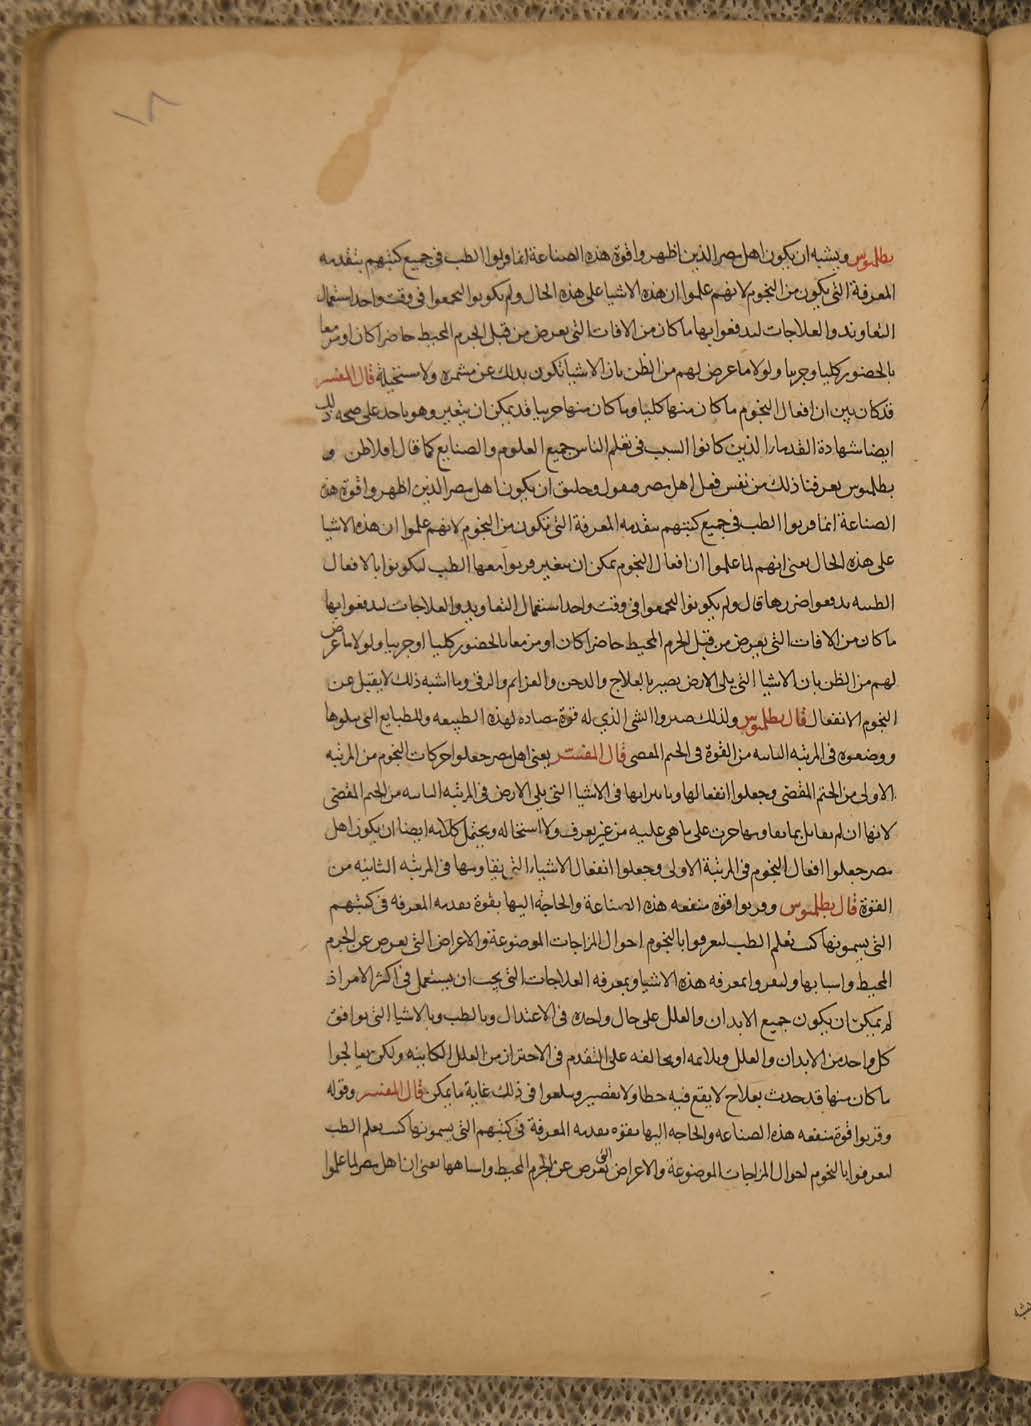 ١٨
بطلميوس ويشبه ان يكون اهل مصر الذين اظهروا قوة هذه الصناعة انما قربوا الطب في جميع كتبهم بتقدمه
المعرفة التي يكون من النجوم لانهم علموا ان هذه الاشيا على هذه الحال ولم يكونوا اجمعوا في وقت واحد استعمال
التعاويذ والعلاجات ليدفعوا بها ما كان من الافات التي يعرض من قبل الجرم المحيط حاضرا كان او مزمعا
بالحضور كليا وجزيا ولولا ما عرض لهم من الظن بان الاشيا تكون بذلك عن مثمره ولا مستحيلة قال المفسر
قد كان بين ان افعال النجوم ما كان منها كليا وما كان منها جزييا قد يمكن ان يتغير وهو ياخذ على صحه ذلك
ايضا شهادة القدماء الذين كانوا السبب في تعلم الناس جميع العلوم والصنايع كما قال افلاطن و
بطلميوس يعرفنا ذلك من نفس فعل اهل مصر ويقول وخليق ان يكون اهل مصر الذين اظهروا قوة هذه
الصناعة انما قربوا الطب في جميع كتبهم بتقدمه المعرفة التي تكون من النجوم لانهم علموا ان هذه الاشيا
على هذه الحال يعني انهم لما علموا ان افعال النجوم يمكن ان يتغير قربوا معها الطب ليكونوا بالافعال
الطبيه يدفعوا ضررها قال ولم يكونوا اجمعوا في وقت واحد استعمال التعاويذ والعلاجات ليدفعوا بها
ما كان من الافات التي يعرض من قبل الجرم المحيط حاضرا كان او مزمعا بالحضور كليا او جزييا ولولا ما عرض
لهم من الظن بان الاشيا التي يلي الارض يصير بالعلاج والدخن والعزايم والرقى وما اشبه ذلك لا يقبل عن
النجوم الانفعال قال بطلميوس ولذلك صيروا الشي الذي له قوة مضاده لهذه الطبيعه وللطبايع التي يتلوها
ووضعوه في المرتبه الثانيه من القوة في الحتم المقضى قال المفسر يعني اهل مصر جعلوا حركات النجوم من المرتبه
الاولى من الحتم المقضى وجعلوا انفعالها وتاثيراتها في الاشيا التي يلي الارض في المرتبه الثانيه من الحتم المقضى
لانها ان لم تقابل بما يقاومها جرت على ما هي عليه من غير تعرف ولا استحاله ويحتمل كلامه ايضا ان يكون اهل
مصر جعلوا افعال النجوم في المرتبة الاولى وجعلوا انفعال الاشياء التي يقاومها في المرتبه الثانيه من
القوة قال بطلميوس وقربوا قوة منفعه هذه الصناعة والحاجة اليها بقوة تقدمه المعرفه في كتبهم
التي يسمونها كتب تعلم الطب ليعرفوا بالنجوم احوال المزاجات الموضوعة والاعراض التي يعرض عن الجرم
المحيط واسبابها وليعرفوا بمعرفه هذه الاشيا وبمعرفه العلاجات التي يجب ان يستعمل في اكثر الامر اذ
لم يمكن ان يكون جميع الابدان والعلل على حال واحده في الاعتدال وبالطب وبالاشيا التي يوافق
كل واحد من الابدان والعلل ويلايمه او يخالفه على التقدم في الاحتراز من العلل الكاينه ولكن يعالجوا
ما كان منها قد حدث بعلاج لا يقع فيه خطا ولا تقصير ويبلغوا في ذلك غاية ما يمكن قال المفسر وقوله
وقربوا قوة منفعه هذه الصناعه والحاجه اليها بقوه تقدمه المعرفة في كتبهم التي يسمونها كتب تعلم الطب
ليعرفوا بالنجوم احوال المزاجات الموضوعة والاعراض التي تعرض عن الجرم المحيط واسبابها يعني ان اهل مصر لما علموا